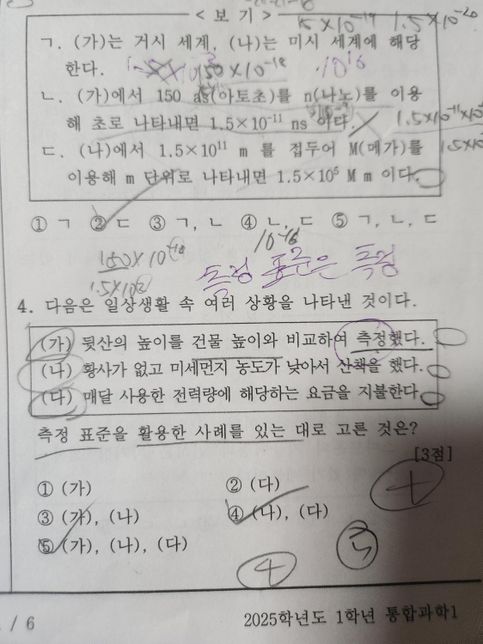 < 보 기 >
15×10⁻¹⁹ 1.5×10⁻²⁰
ㄱ. (가)는 거시 세계, (나)는 미시 세계에 해당
한다.
150×10⁻¹⁸
ㄴ. (가)에서 150 as(아토초)를 n(나노)를 이용
해 초로 나타내면 1.5×10⁻¹¹ ns 이다.
ㄷ. (나)에서 1.5×10¹¹ m 를 접두어 M(메가)를
이용해 m 단위로 나타내면 1.5×10⁵ M m 이다.
① ㄱ ② ㄷ ③ ㄱ, ㄴ ④ ㄴ, ㄷ ⑤ ㄱ, ㄴ, ㄷ
150×10⁻¹⁸
10⁻¹⁶
표준은
4. 다음은 일상생활 속 여러 상황을 나타낸 것이다.
(가) 뒷산의 높이를 건물 높이와 비교하여 측정했다.
(나) 황사가 없고 미세먼지 농도가 낮아서 산책을 했다.
(다) 매달 사용한 전력량에 해당하는 요금을 지불한다.
측정 표준을 활용한 사례를 있는 대로 고른 것은?
[3점]
① (가) ② (다)
③ (가), (나) ④ (나), (다)
⑤ (가), (나), (다)
④
/ 6
2025학년도 1학년 통합과학1